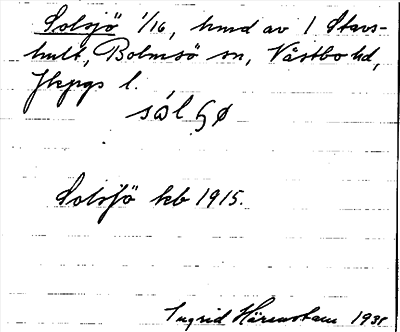 Solsjö 1/16, hmd av 1 Stavs-
hult, Bolmsö sn, Västbo hd,
Jkpgs l.
só̀lɧø
Solsjö kb 1915.
Ingrid Härenstam 1935